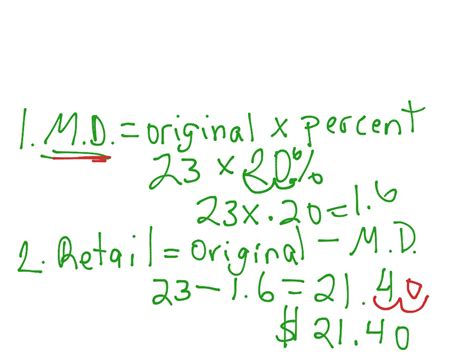 1. M.D. = original x percent
23 x 20%
23x.20=1.6
2. Retail = Original - M.D.
23-1.6 = 21.40
$21.40